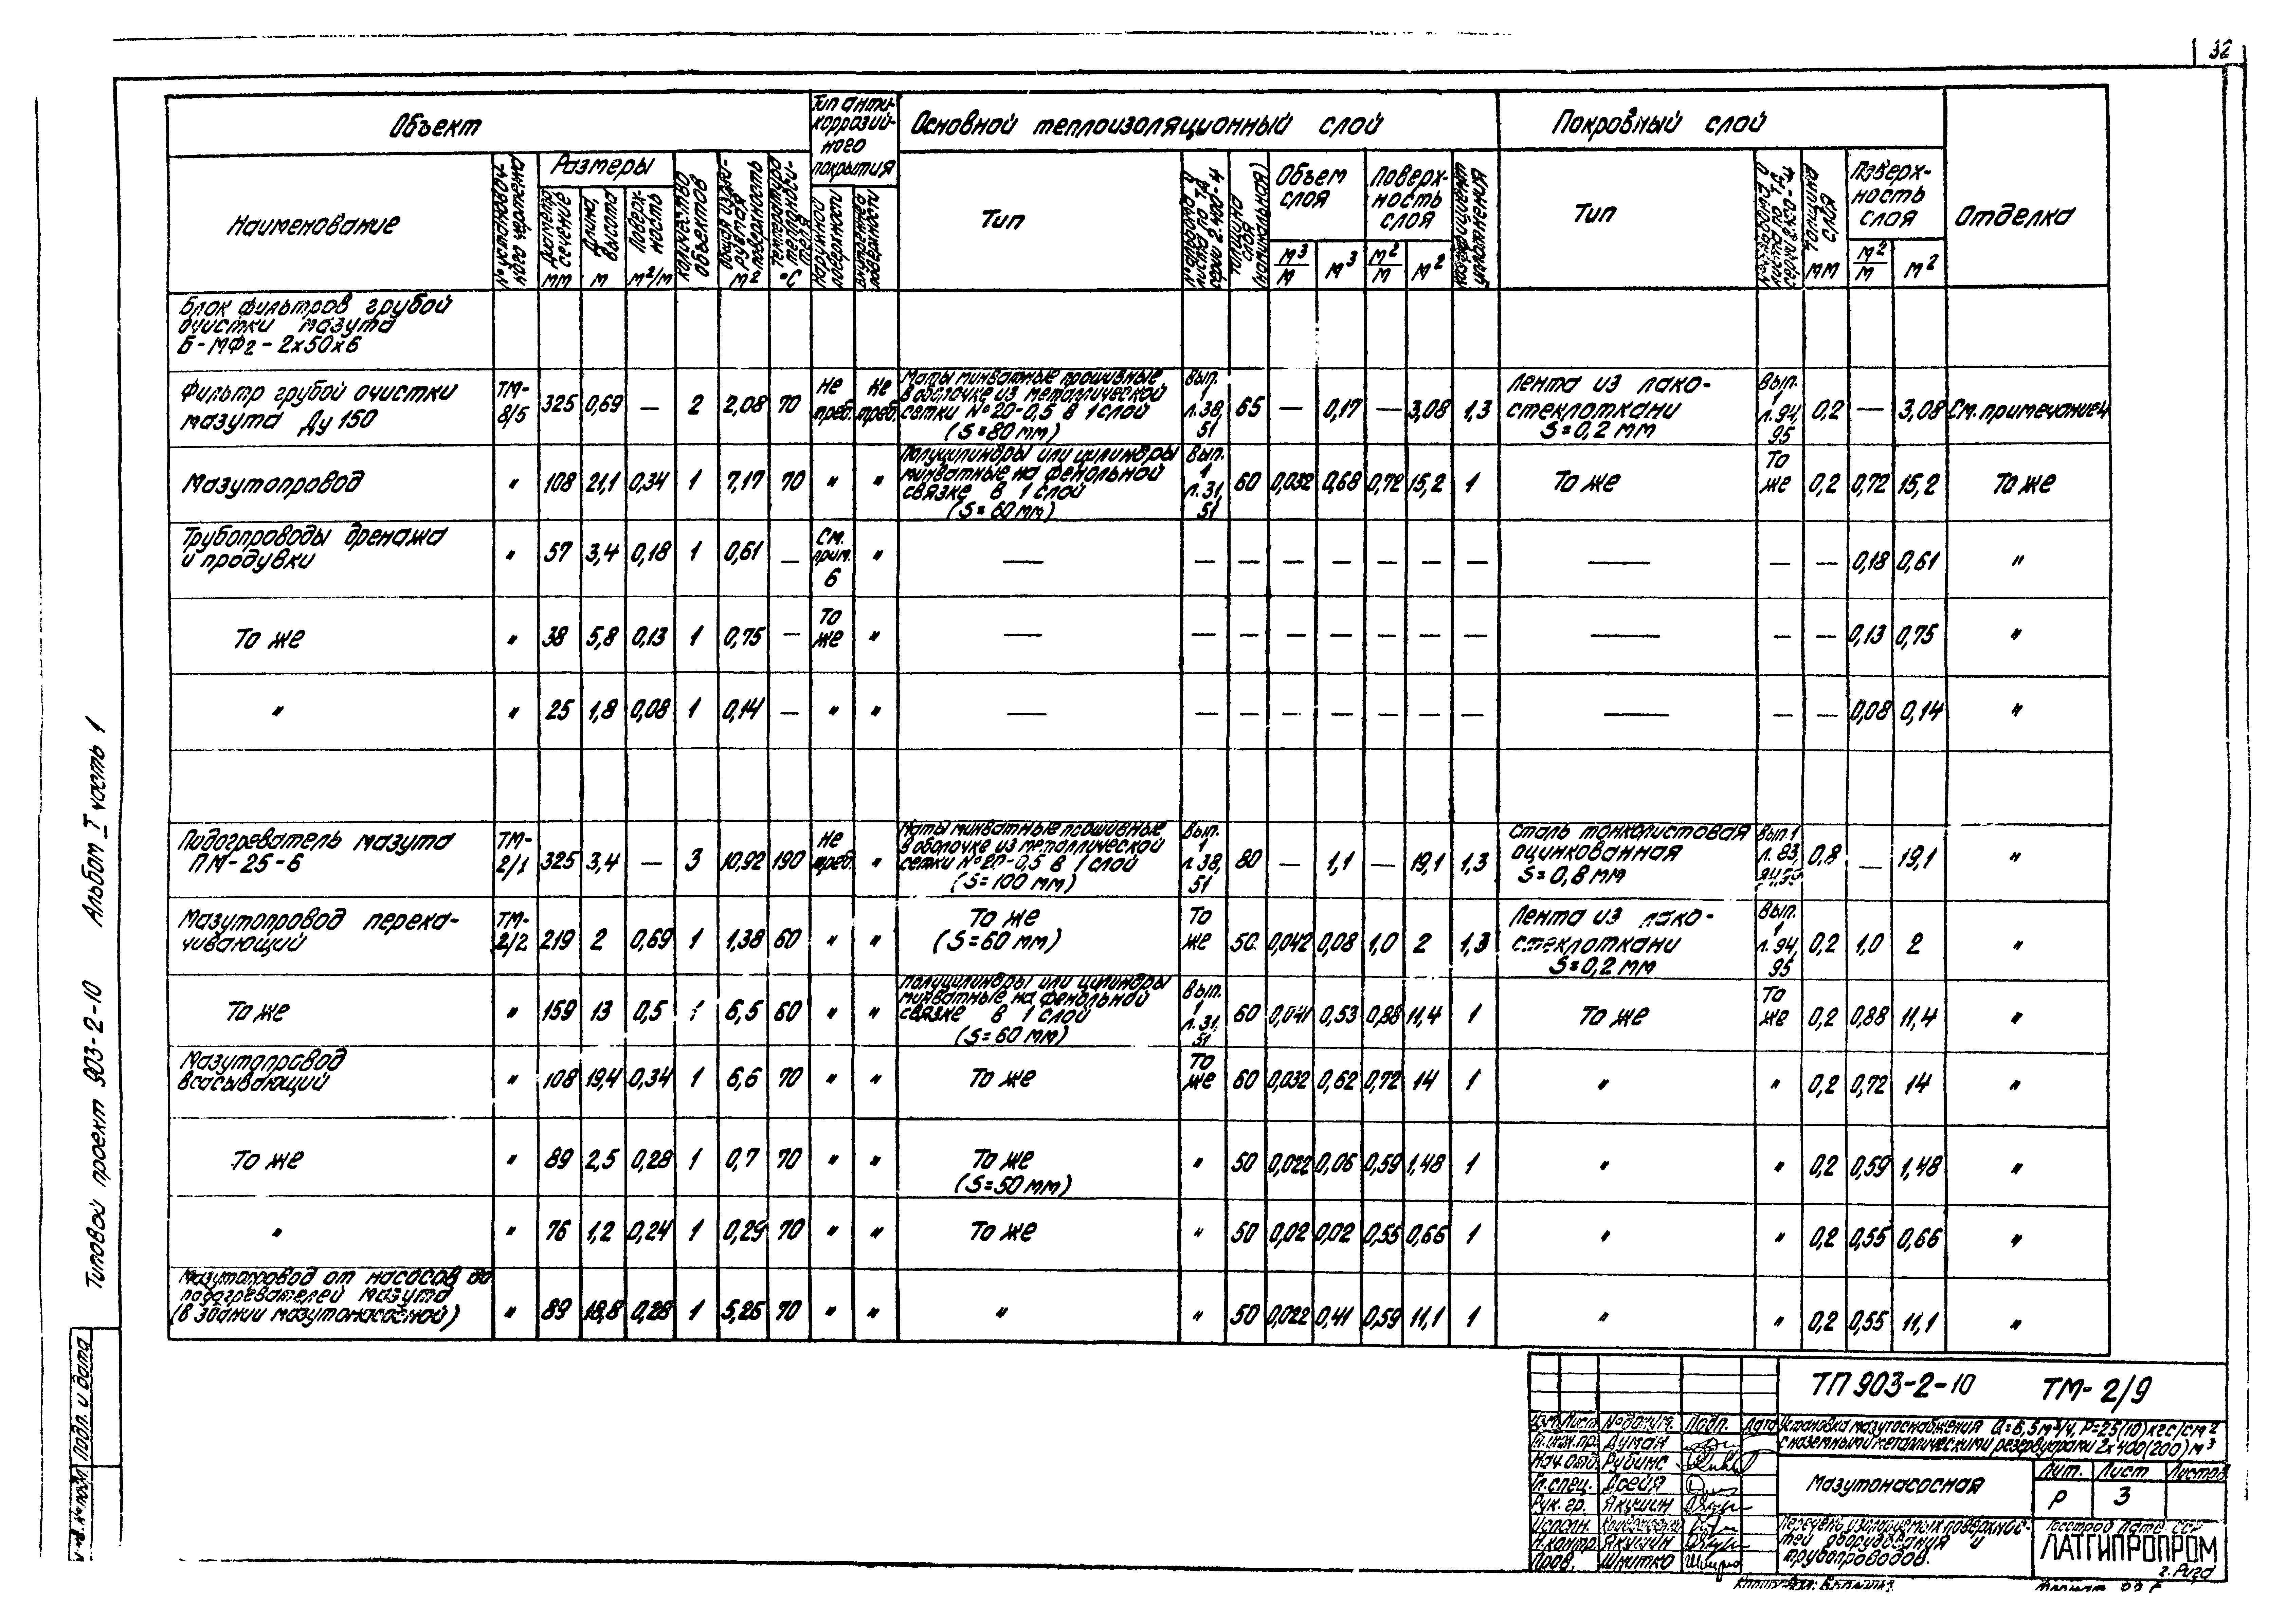 32
Объект
Тип анти-
коррозий-
ного
покрытия
Основной теплоизоляционный слой
Покровный слой
Отделка
Наименование
№ установоч-
ного чертежа
Размеры
Диаметр, сечение мм
Длина, высота м
Поверх-
ность м²/м
Количество объектов
Общая изоли-
руемая поверхность м²
Температура теплоноси-
теля °С
Наружной поверхности
Внутренней поверхности
Тип
Толщина слоя (номинальная)
Объем слоя
м³/м
м³
Поверх-
ность
слоя
м²/м
м²
Коэффициент уплотнения
Тип
Толщина слоя
мм
Поверх-
ность
слоя
м²/м
м²
Блок фильтров грубой
очистки мазута
Б-МФ2-2х50х6
Фильтр грубой очистки
мазута Ду 150
ТМ-
8/5
325 0,69 — 2 2,08 70
не
треб.
не
треб.
Маты минватные прошивные
в оболочке из металлической
сетки №20-0,5 в 1 слой
(S=80 мм)
Вып.
1
л.38,
51
65 — 0,17 — 3,08 1,3
Лента из лако-
стеклоткани
S=0,2 мм
Вып.
1
л.94,
95
0,2 — 3,08 См. примечание 4
Мазутопровод " 108 21,1 0,34 1 7,17 70 " "
Полуцилиндры или цилиндры
минватные на фенольной
связке в 1 слой
(S=60 мм)
Вып.
1
л.31,
51
60 0,032 0,68 0,72 15,2 1 То же
То
же
0,2 0,72 15,2 То же
Трубопроводы дренажа
и продувки
" 57 3,4 0,18 1 0,61 —
См.
прим.
6
" — — — — — — — — — — — 0,18 0,61 "
То же " 38 5,8 0,13 1 0,75 —
То
же
" — — — — — — — — — — — 0,13 0,75 "
" " 25 1,8 0,08 1 0,14 — " " — — — — — — — — — — — 0,08 0,14 "
Подогреватель мазута
ПМ-25-6
ТМ-
2/1
325 3,4 — 3 10,92 190
не
треб.
"
Маты минватные прошивные
в оболочке из металлической
сетки №20-0,5 в 1 слой
(S=100 мм)
Вып.
1
л.38,
51
80 — 1,1 — 19,1 1,3
Сталь тонколистовая
оцинкованная
S=0,8 мм
Вып.1
л.83,
0,8 — 19,1 "
Мазутопровод перека-
чивающий
ТМ-
2/2
219 2 0,69 1 1,38 60 " "
То же
(S=60 мм)
То
же
50 0,042 0,08 1,0 2 1,3
Лента из лако-
стеклоткани
S=0,2 мм
Вып.
1
л.94,
95
0,2 1,0 2 "
То же " 159 13 0,5 1 6,5 60 " "
Полуцилиндры или цилиндры
минватные на фенольной
связке в 1 слой
(S=60 мм)
Вып.
1
л.31,
51
60 0,041 0,53 0,88 11,4 1 То же
То
же
0,2 0,88 11,4 "
Мазутопровод
всасывающий
" 108 19,4 0,34 1 6,6 70 " " То же
То
же
60 0,032 0,62 0,72 14 1 " " 0,2 0,72 14 "
То же " 89 2,5 0,28 1 0,7 70 " "
То же
(S=50 мм)
" 50 0,022 0,06 0,59 1,48 1 " " 0,2 0,59 1,48 "
" " 76 1,2 0,24 1 0,29 70 " " То же " 50 0,02 0,02 0,55 0,66 1 " " 0,2 0,55 0,66 "
Мазутопровод от насосов до
подогревателей мазута
(в здании мазутонасосной)
" 89 18,8 0,28 1 5,26 70 " " " " 50 0,022 0,41 0,59 11,1 1 " " 0,2 0,55 11,1 "
Типовой проект 903-2-10 Альбом I часть 1
Подп. и дата
ТП 903-2-10 ТМ-2/9
Изм. Лист № докум. Подп. Дата
Установка мазутоснабжения Q=6,5 м³/ч, P=25(10) кгс/см²
с наземными металлическими резервуарами 2х400(200) м³
Гл.инж.пр. Думан
Нач.отд. Рубинс
Гл.спец. Дрейя
Рук.гр. Якушин
Исполн.
Н.контр. Якушин
Пров. Шнитко
Мазутонасосная
Лит. Лист Листов
Р 3
Перечень изолируемых поверхнос-
тей оборудования и
трубопроводов.
Госстрой Латв. ССР
ЛАТГИПРОПРОМ
г. Рига